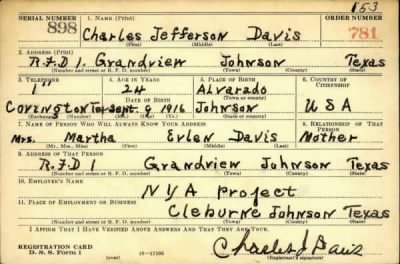 153
SERIAL NUMBER 1. NAME (Print) ORDER NUMBER
898 Charles Jefferson Davis 781
(First) (Middle) (Last)
2. ADDRESS (Print)
R.F.D 1. Grandview Johnson Texas
(Number and street or R. F. D. number) (Town) (County) (State)
3. TELEPHONE 4. AGE IN YEARS 5. PLACE OF BIRTH 6. COUNTRY OF CITIZENSHIP
1" 24 Alvarado
DATE OF BIRTH (Town or county)
Covington Sept. 9 1916 Johnson USA
(Exchange) (Number) (Mo.) (Day) (Yr.) (State or country)
7. NAME OF PERSON WHO WILL ALWAYS KNOW YOUR ADDRESS 8. RELATIONSHIP OF THAT PERSON
Mrs. Martha Evlen Davis Mother
(Mr., Mrs., Miss) (First) (Middle) (Last)
9. ADDRESS OF THAT PERSON
R.F.D 1 Grandview Johnson Texas
(Number and street or R. F. D. number) (Town) (County) (State)
10. EMPLOYER'S NAME
NYA project
11. PLACE OF EMPLOYMENT OR BUSINESS
Cleburne Johnson Texas
(Number and street or R. F. D. number) (Town) (County) (State)
I AFFIRM THAT I HAVE VERIFIED ABOVE ANSWERS AND THAT THEY ARE TRUE.
REGISTRATION CARD
D. S. S. Form 1 16-17105 Charles J Davis
(Registrant's signature)